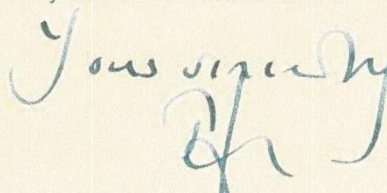 Yours sincerely